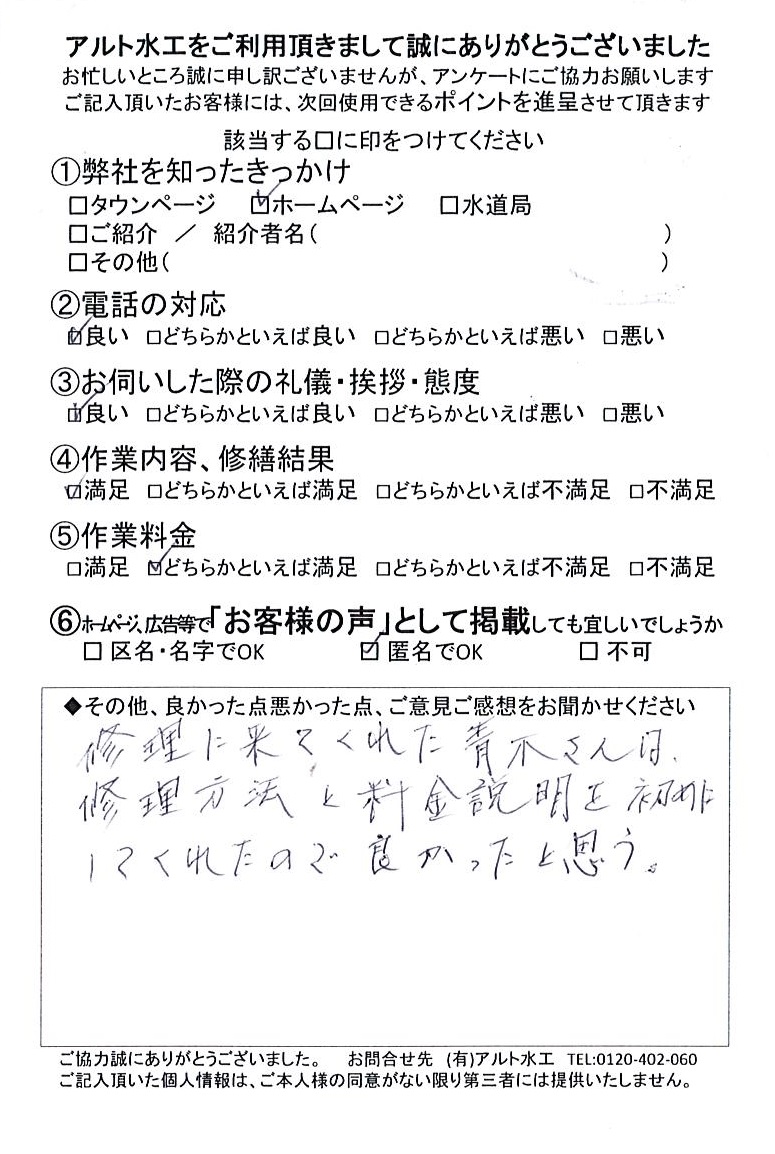 アルト水工をご利用頂きまして誠にありがとうございました
お忙しいところ誠に申し訳ございませんが、アンケートにご協力お願いします
ご記入頂いたお客様には、次回使用できるポイントを進呈させて頂きます
該当する□に印をつけてください
①弊社を知ったきっかけ
□タウンページ ☑ホームページ □水道局
□ご紹介 ／ 紹介者名( )
□その他( )
②電話の対応
☑良い □どちらかといえば良い □どちらかといえば悪い □悪い
③お伺いした際の礼儀・挨拶・態度
☑良い □どちらかといえば良い □どちらかといえば悪い □悪い
④作業内容、修繕結果
☑満足 □どちらかといえば満足 □どちらかといえば不満足 □不満足
⑤作業料金
□満足 ☑どちらかといえば満足 □どちらかといえば不満足 □不満足
⑥ホームページ、広告等で「お客様の声」として掲載しても宜しいでしょうか
□ 区名・名字でOK ☑ 匿名でOK □ 不可
◆その他、良かった点悪かった点、ご意見ご感想をお聞かせください
修理に来てくれた青木さんは、
修理方法と料金説明を初めに
してくれたので良かったと思う。
ご協力誠にありがとうございました。 お問合せ先 (有)アルト水工 TEL:0120-402-060
ご記入頂いた個人情報は、ご本人様の同意がない限り第三者には提供いたしません。